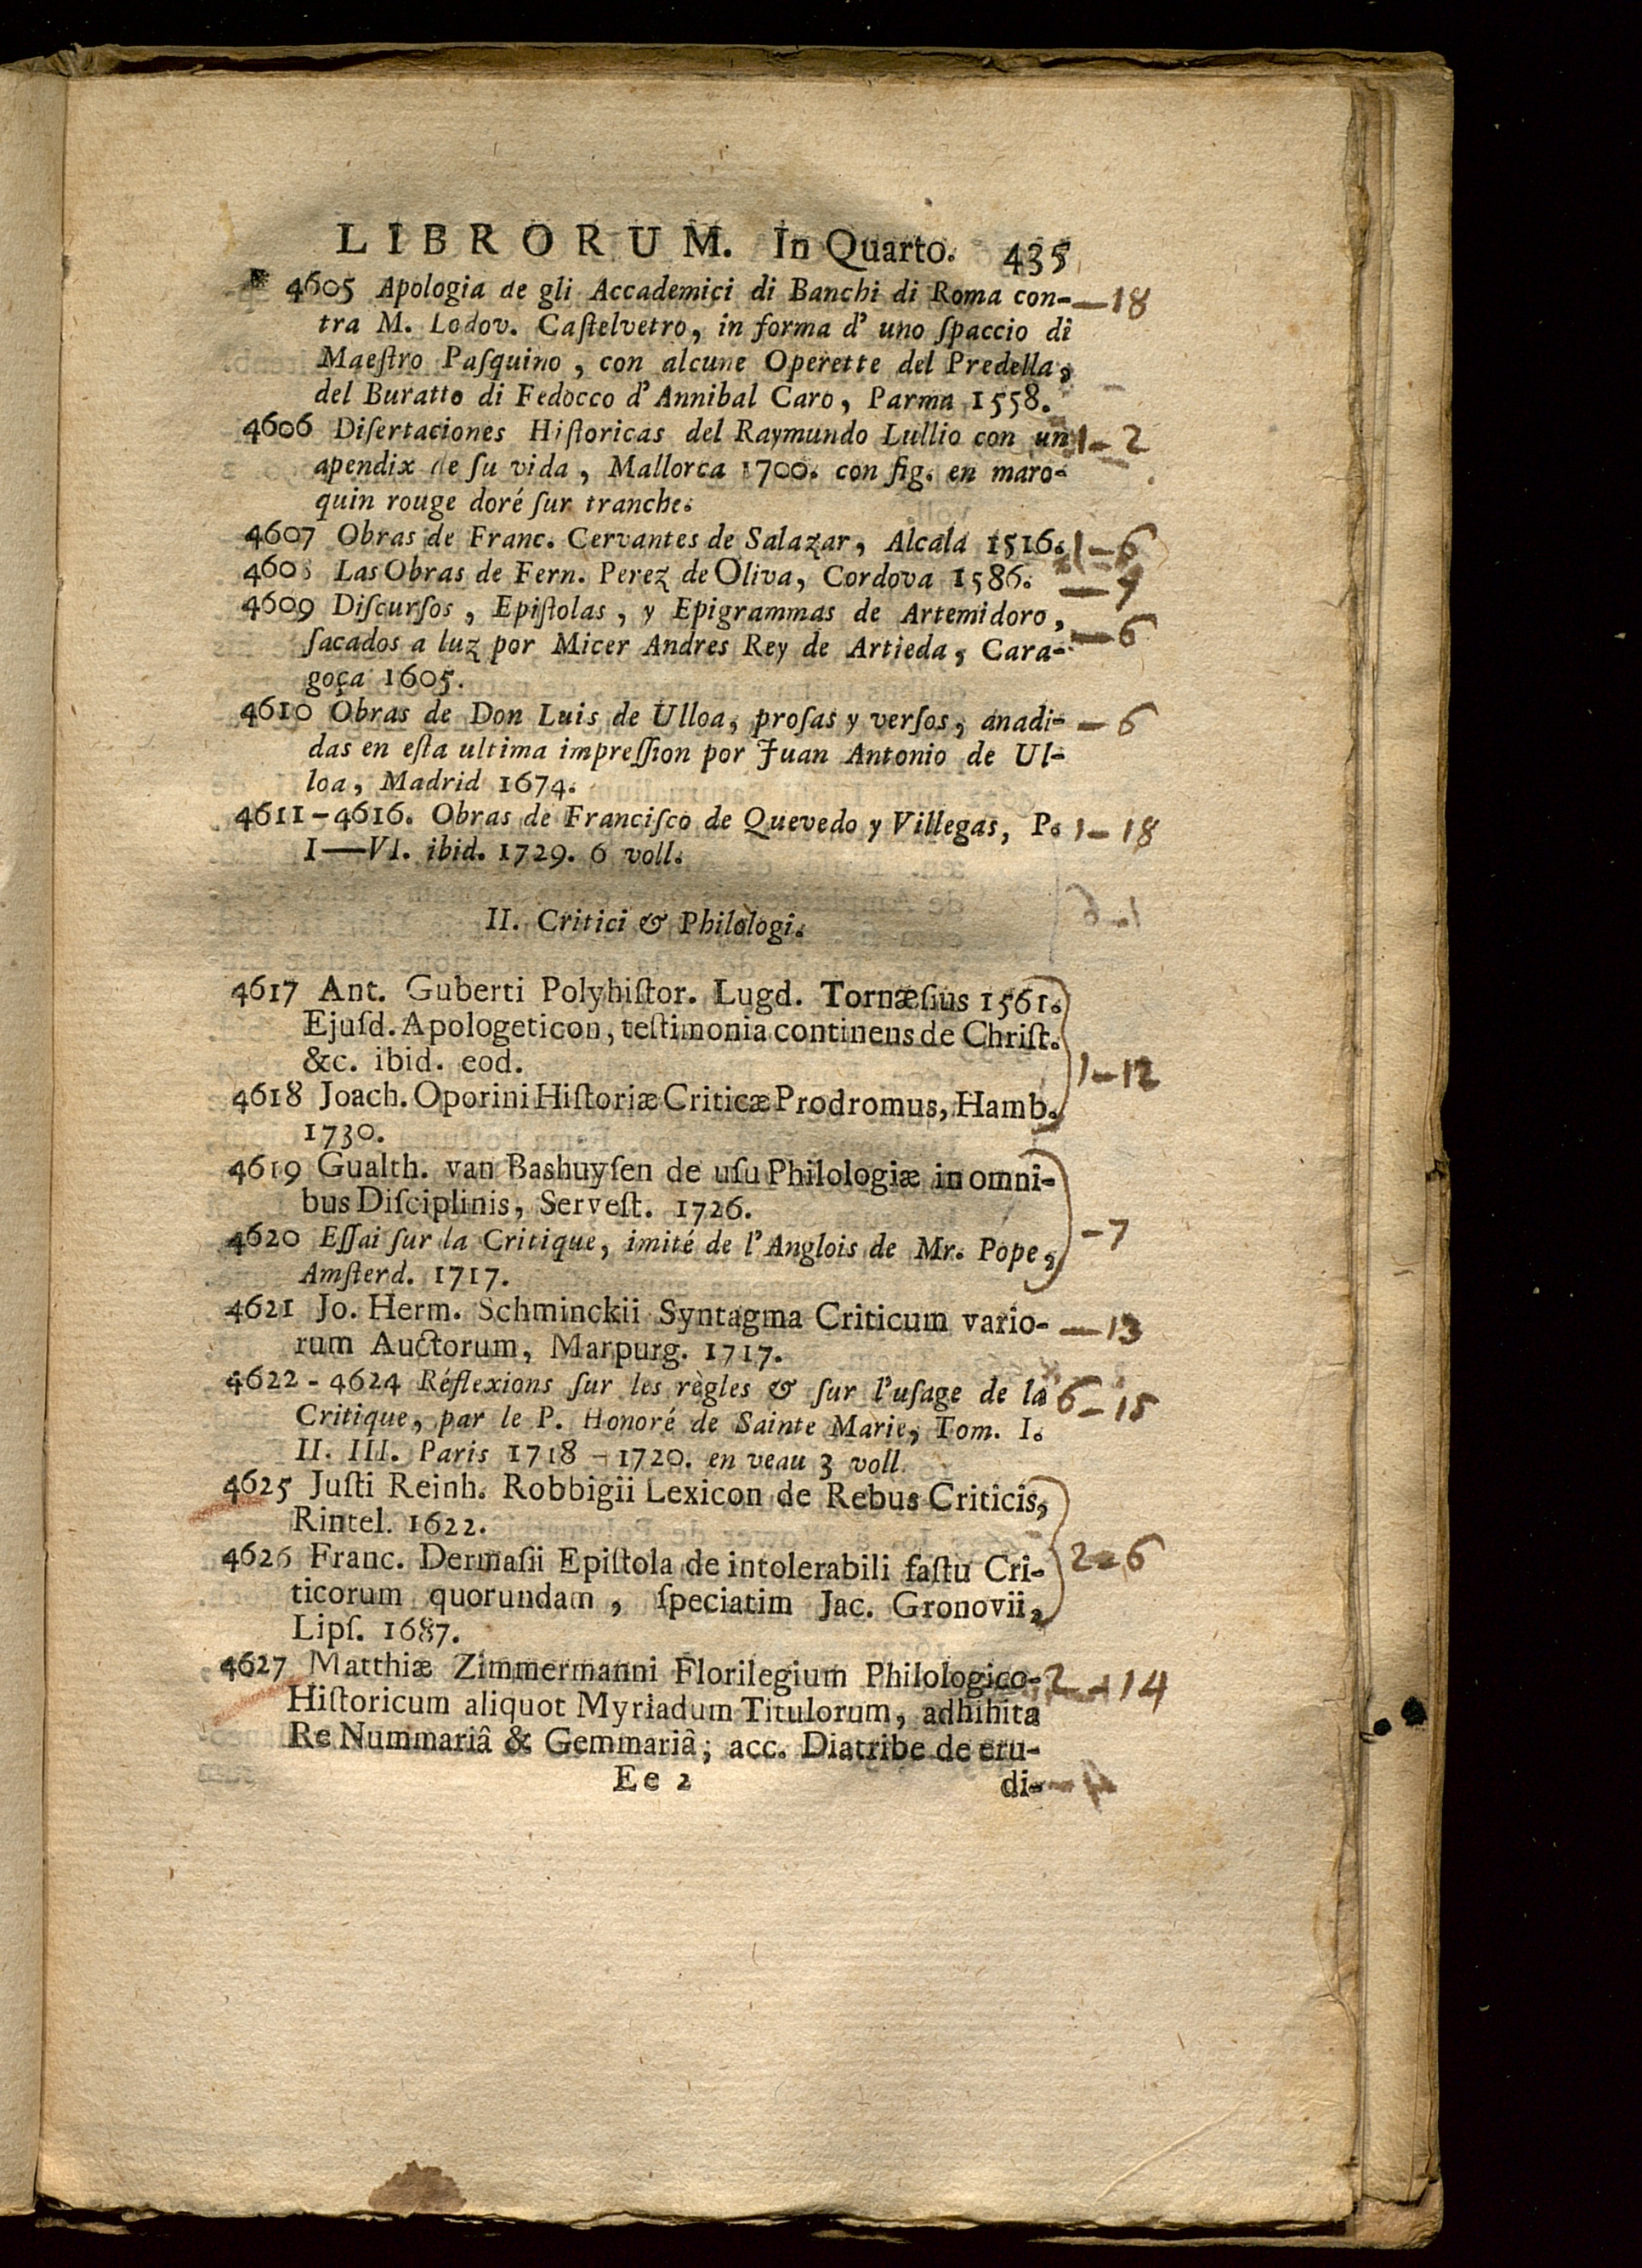 LIBRORUM. In Quarto. 435
* 4605 Apologia de gli Accademici di Banchi di Roma con- —18
tra M. Lodov. Caſtelvetro, in forma d' uno ſpaccio di
Maeſtro Paſquino, con alcune Operette del Predella,
del Buratto di Fedocco d' Annibal Caro, Parma 1558.
4606 Diſertaciones Hiſtoricas del Raymundo Lullio con un 1–2
apendix de ſu vida, Mallorca 1700. con fig. en maro-
quin rouge doré ſur tranche.
4607 Obras de Franc. Cervantes de Salazar, Alcala 1516. 1–6
4608 Las Obras de Fern. Perez de Oliva, Cordova 1586. —
4609 Diſcurſos, Epiſtolas, y Epigrammas de Artemidoro,
ſacados a luz por Micer Andres Rey de Artieda, Cara- —6
goça 1605.
4610 Obras de Don Luis de Ulloa, proſas y verſos, anadi- —6
das en eſta ultima impreſſion por Juan Antonio de Ul-
loa, Madrid 1674.
4611-4616. Obras de Franciſco de Quevedo y Villegas, P. 1–18
I—VI. ibid. 1729. 6 voll.
II. Critici & Philologi.
4617 Ant. Guberti Polyhiſtor. Lugd. Tornæſius 1561.
Ejuſd. Apologeticon, teſtimonia continens de Chriſt.
&c. ibid. eod. 1–12
4618 Joach. Oporini Hiſtoriæ Criticæ Prodromus, Hamb.
1730.
4619 Gualth. van Bashuyſen de uſu Philologiæ in omni-
bus Diſciplinis, Serveſt. 1726.
4620 Eſſai ſur la Critique, imité de l' Anglois de Mr. Pope, –7
Amſterd. 1717.
4621 Jo. Herm. Schminckii Syntagma Criticum vario- —13
rum Auctorum, Marpurg. 1717.
4622-4624 Réflexions ſur les règles & ſur l'uſage de la 6–15
Critique, par le P. Honoré de Sainte Marie, Tom. I.
II. III. Paris 1718-1720. en veau 3 voll.
4625 Juſti Reinh. Robbigii Lexicon de Rebus Criticis,
Rintel. 1622.
4626 Franc. Dermaſii Epiſtola de intolerabili faſtu Cri- 2–6
ticorum quorundam, ſpeciatim Jac. Gronovii,
Lipſ. 1687.
4627 Matthiæ Zimmermanni Florilegium Philologico- 2–14
Hiſtoricum aliquot Myriadum Titulorum, adhihita
Re Nummariâ & Gemmariâ; acc. Diatribe de eru-
Ee 2 di-